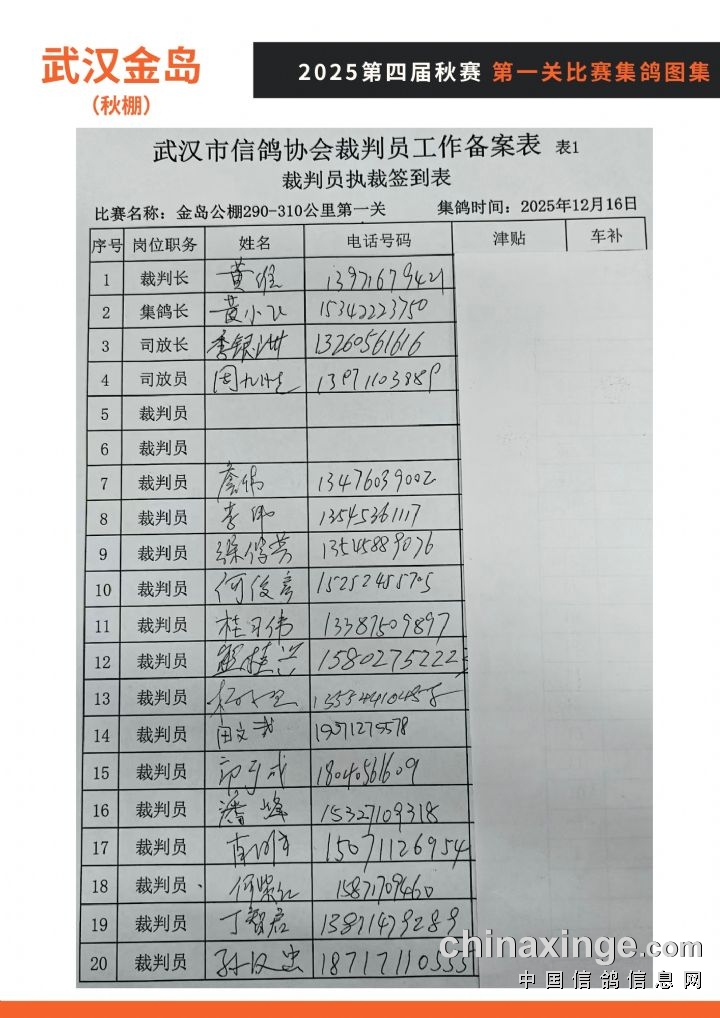 武汉金岛
（秋棚）
2025第四届秋赛 第一关比赛集鸽图集
武汉市信鸽协会裁判员工作备案表 表1
裁判员执裁签到表
比赛名称：金岛公棚290-310公里第一关 集鸽时间：2025年12月16日
序号 岗位职务 姓名 电话号码 津贴 车补
1 裁判长 黄 13971679421
2 集鸽长 黄小飞 15342223750
3 司放长 李银洲 13260561616
4 司放员 周 13971103889
5 裁判员
6 裁判员
7 裁判员 詹伟 13476039002
8 裁判员 李伟 13545361117
9 裁判员 徐 13545889076
10 裁判员 何俊彦 15252455705
11 裁判员 桂习伟 13387509897
12 裁判员 熊桂兴 15802775222
13 裁判员 杨
14 裁判员 田文武
15 裁判员
16 裁判员 潘峰 15327109318
17 裁判员 15071126954
18 裁判员 何紫红 15871709460
19 裁判员 丁智君 13871479289
20 裁判员 孙汉忠 18717110555
chinaxinge.com
中国信鸽信息网